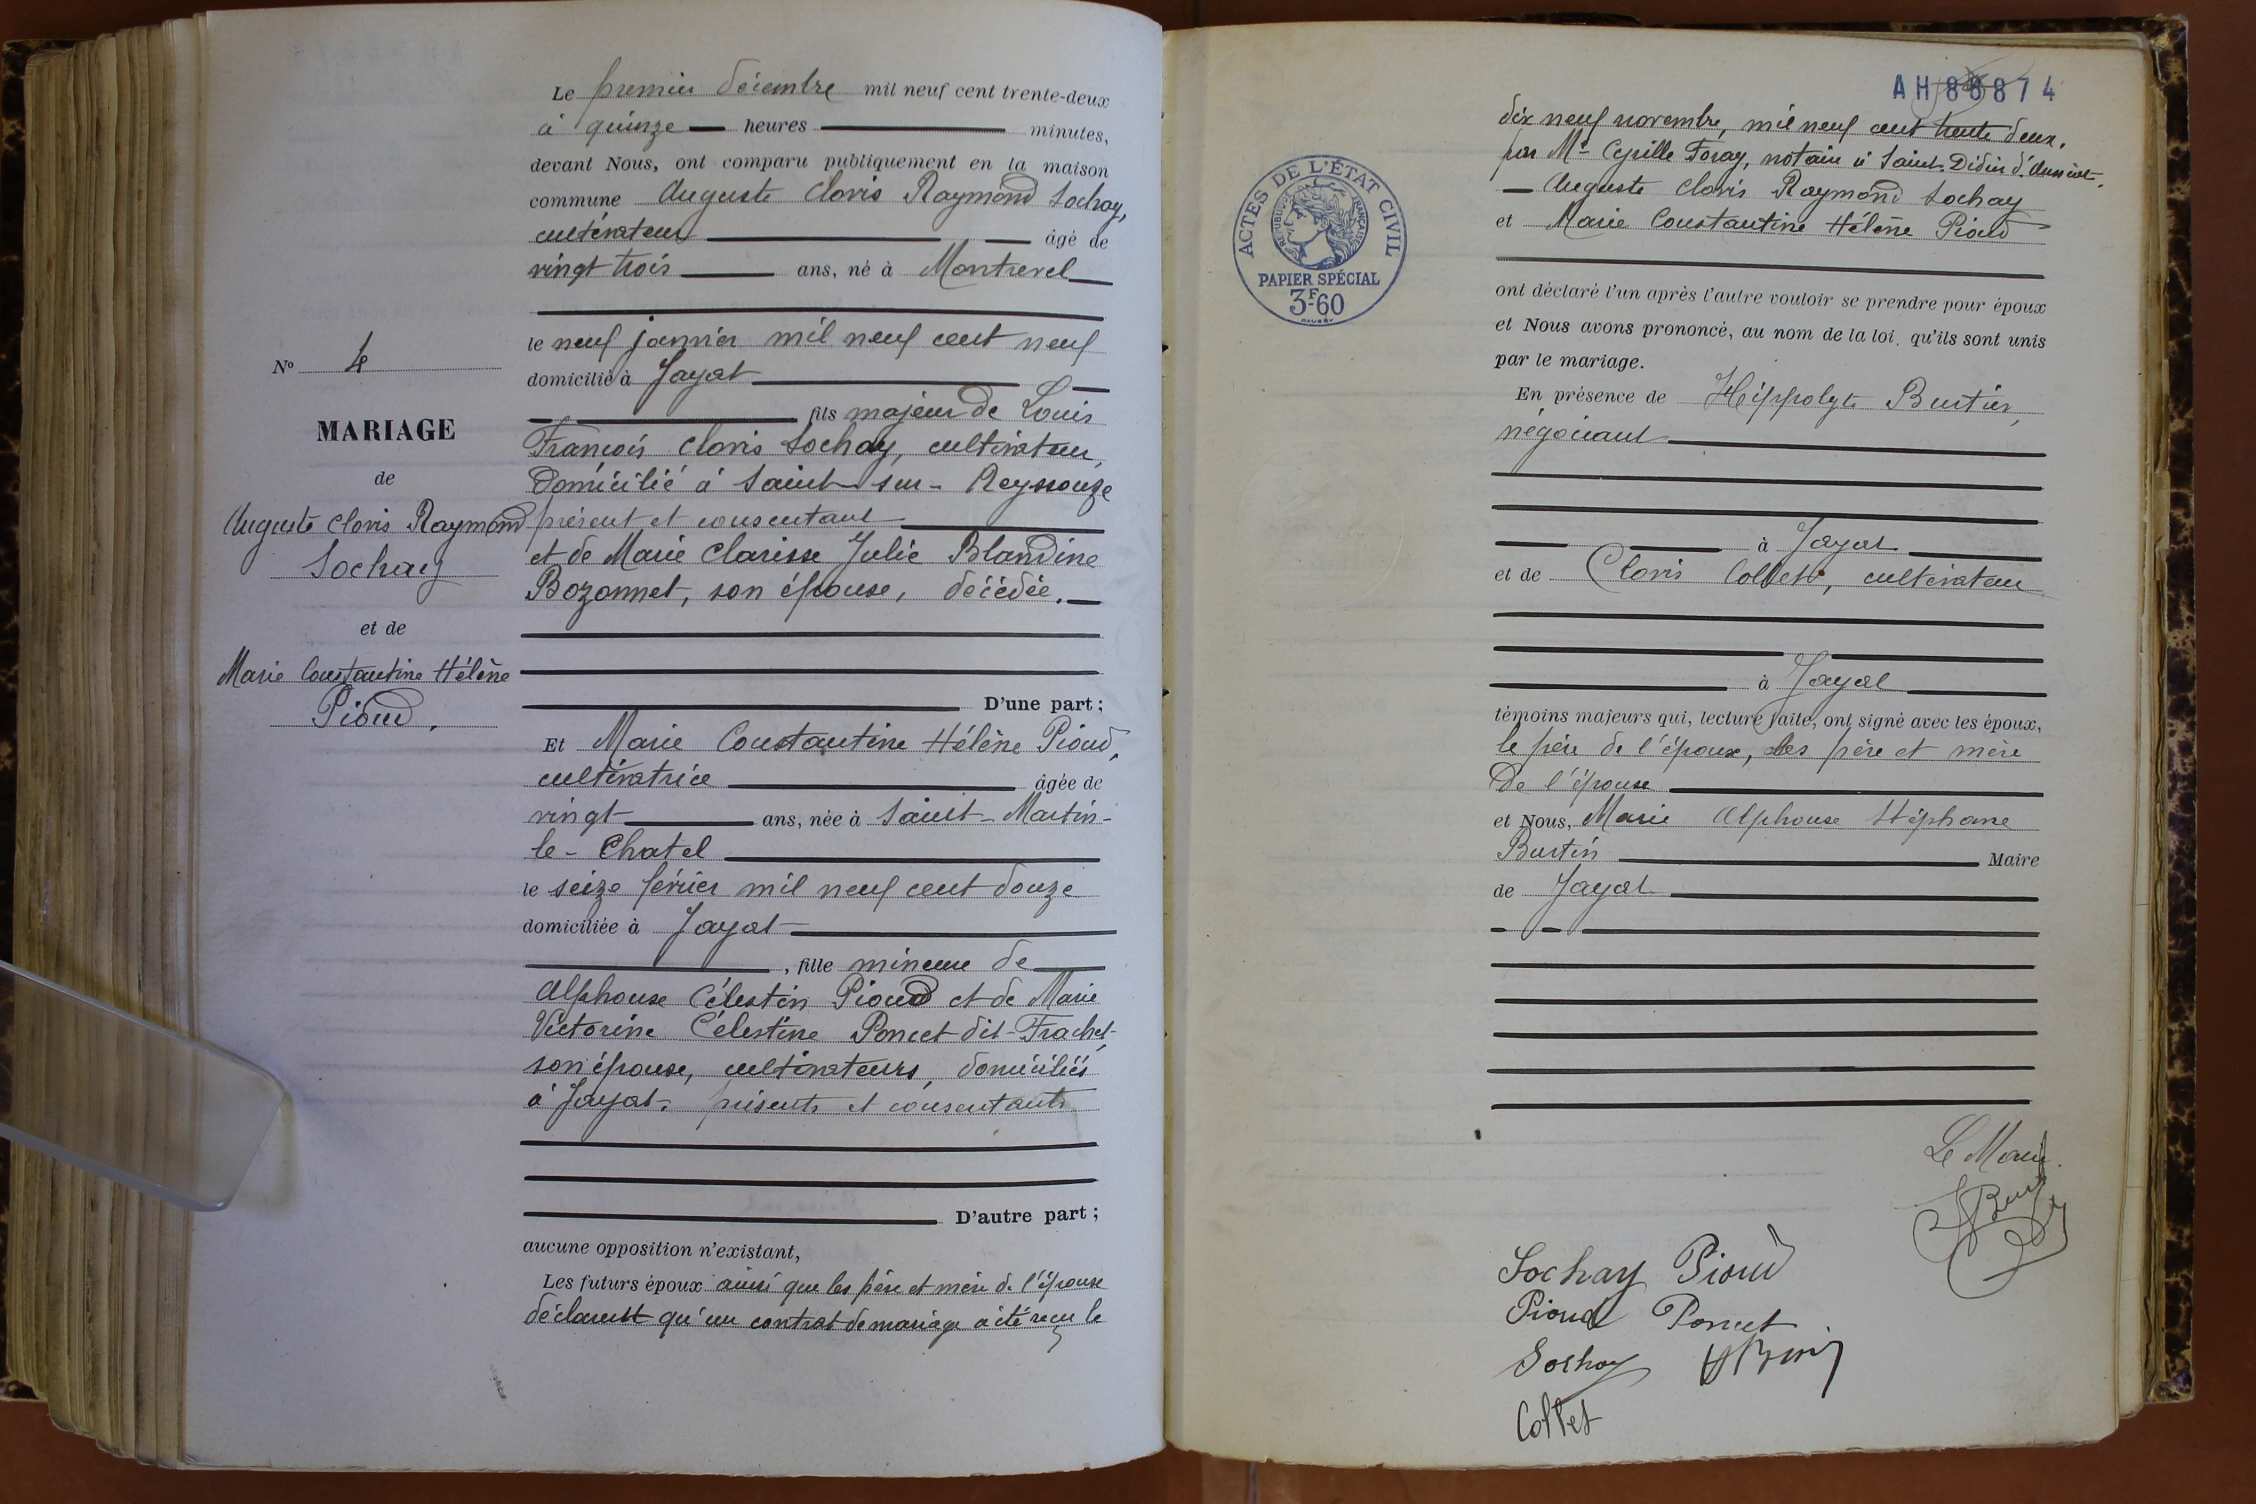 Le premier décembre mil neuf cent trente-deux
à quinze heures minutes,
devant Nous, ont comparu publiquement en la maison
commune Auguste Clovis Raymond Sochay,
cultivateur âgé de
vingt trois ans, né à Montrevel
le neuf janvier mil neuf cent neuf
domicilié à Jayat
fils majeur de Louis
François Clovis Sochay, cultivateur,
domicilié à Saint sur-Reyssouze
présent et consentant
et de Marie Clarisse Julie Blandine
Bozonnet, son épouse, décédée.
D'une part ;
Et Marie Constantine Hélène Pioud,
cultivatrice âgée de
vingt ans, née à Saint-Martin-
le-Chatel
le seize février mil neuf cent douze
domiciliée à Jayat
, fille mineure de
Alphonse Célestin Pioud et de Marie
Victorine Célestine Poncet dit-Frachet
son épouse, cultivateurs, domiciliés
à Jayat. présents et consentants
D'autre part ;
aucune opposition n'existant,
Les futurs époux ainsi que les père et mère de l'épouse
déclarent qu'un contrat de mariage a été reçu le
No 4
MARIAGE
de
Auguste Clovis Raymond
Sochay
et de
Marie Constantine Hélène
Pioud.
AH88874
dix neuf novembre, mil neuf cent trente deux,
par Me Cyrille Foray, notaire à Saint-Didier d'Aussiat.
Auguste Clovis Raymond Sochay
et Marie Constantine Hélène Pioud
ont déclaré l'un après l'autre vouloir se prendre pour époux
et Nous avons prononcé, au nom de la loi, qu'ils sont unis
par le mariage.
En présence de Hippolyte Burtin,
négociant
à Jayat
et de Clovis Collet, cultivateur
à Jayat
témoins majeurs qui, lecture faite, ont signé avec les époux,
le père de l'époux, les père et mère
de l'épouse
et Nous, Marie Alphonse Stéphane
Burtin Maire
de Jayat
ACTES DE L'ÉTAT CIVIL
RÉPUBLIQUE FRANÇAISE
PAPIER SPÉCIAL
3F-60
Le Maire
Sochay Pioud
Pioud Poncet
Sochay
Collet